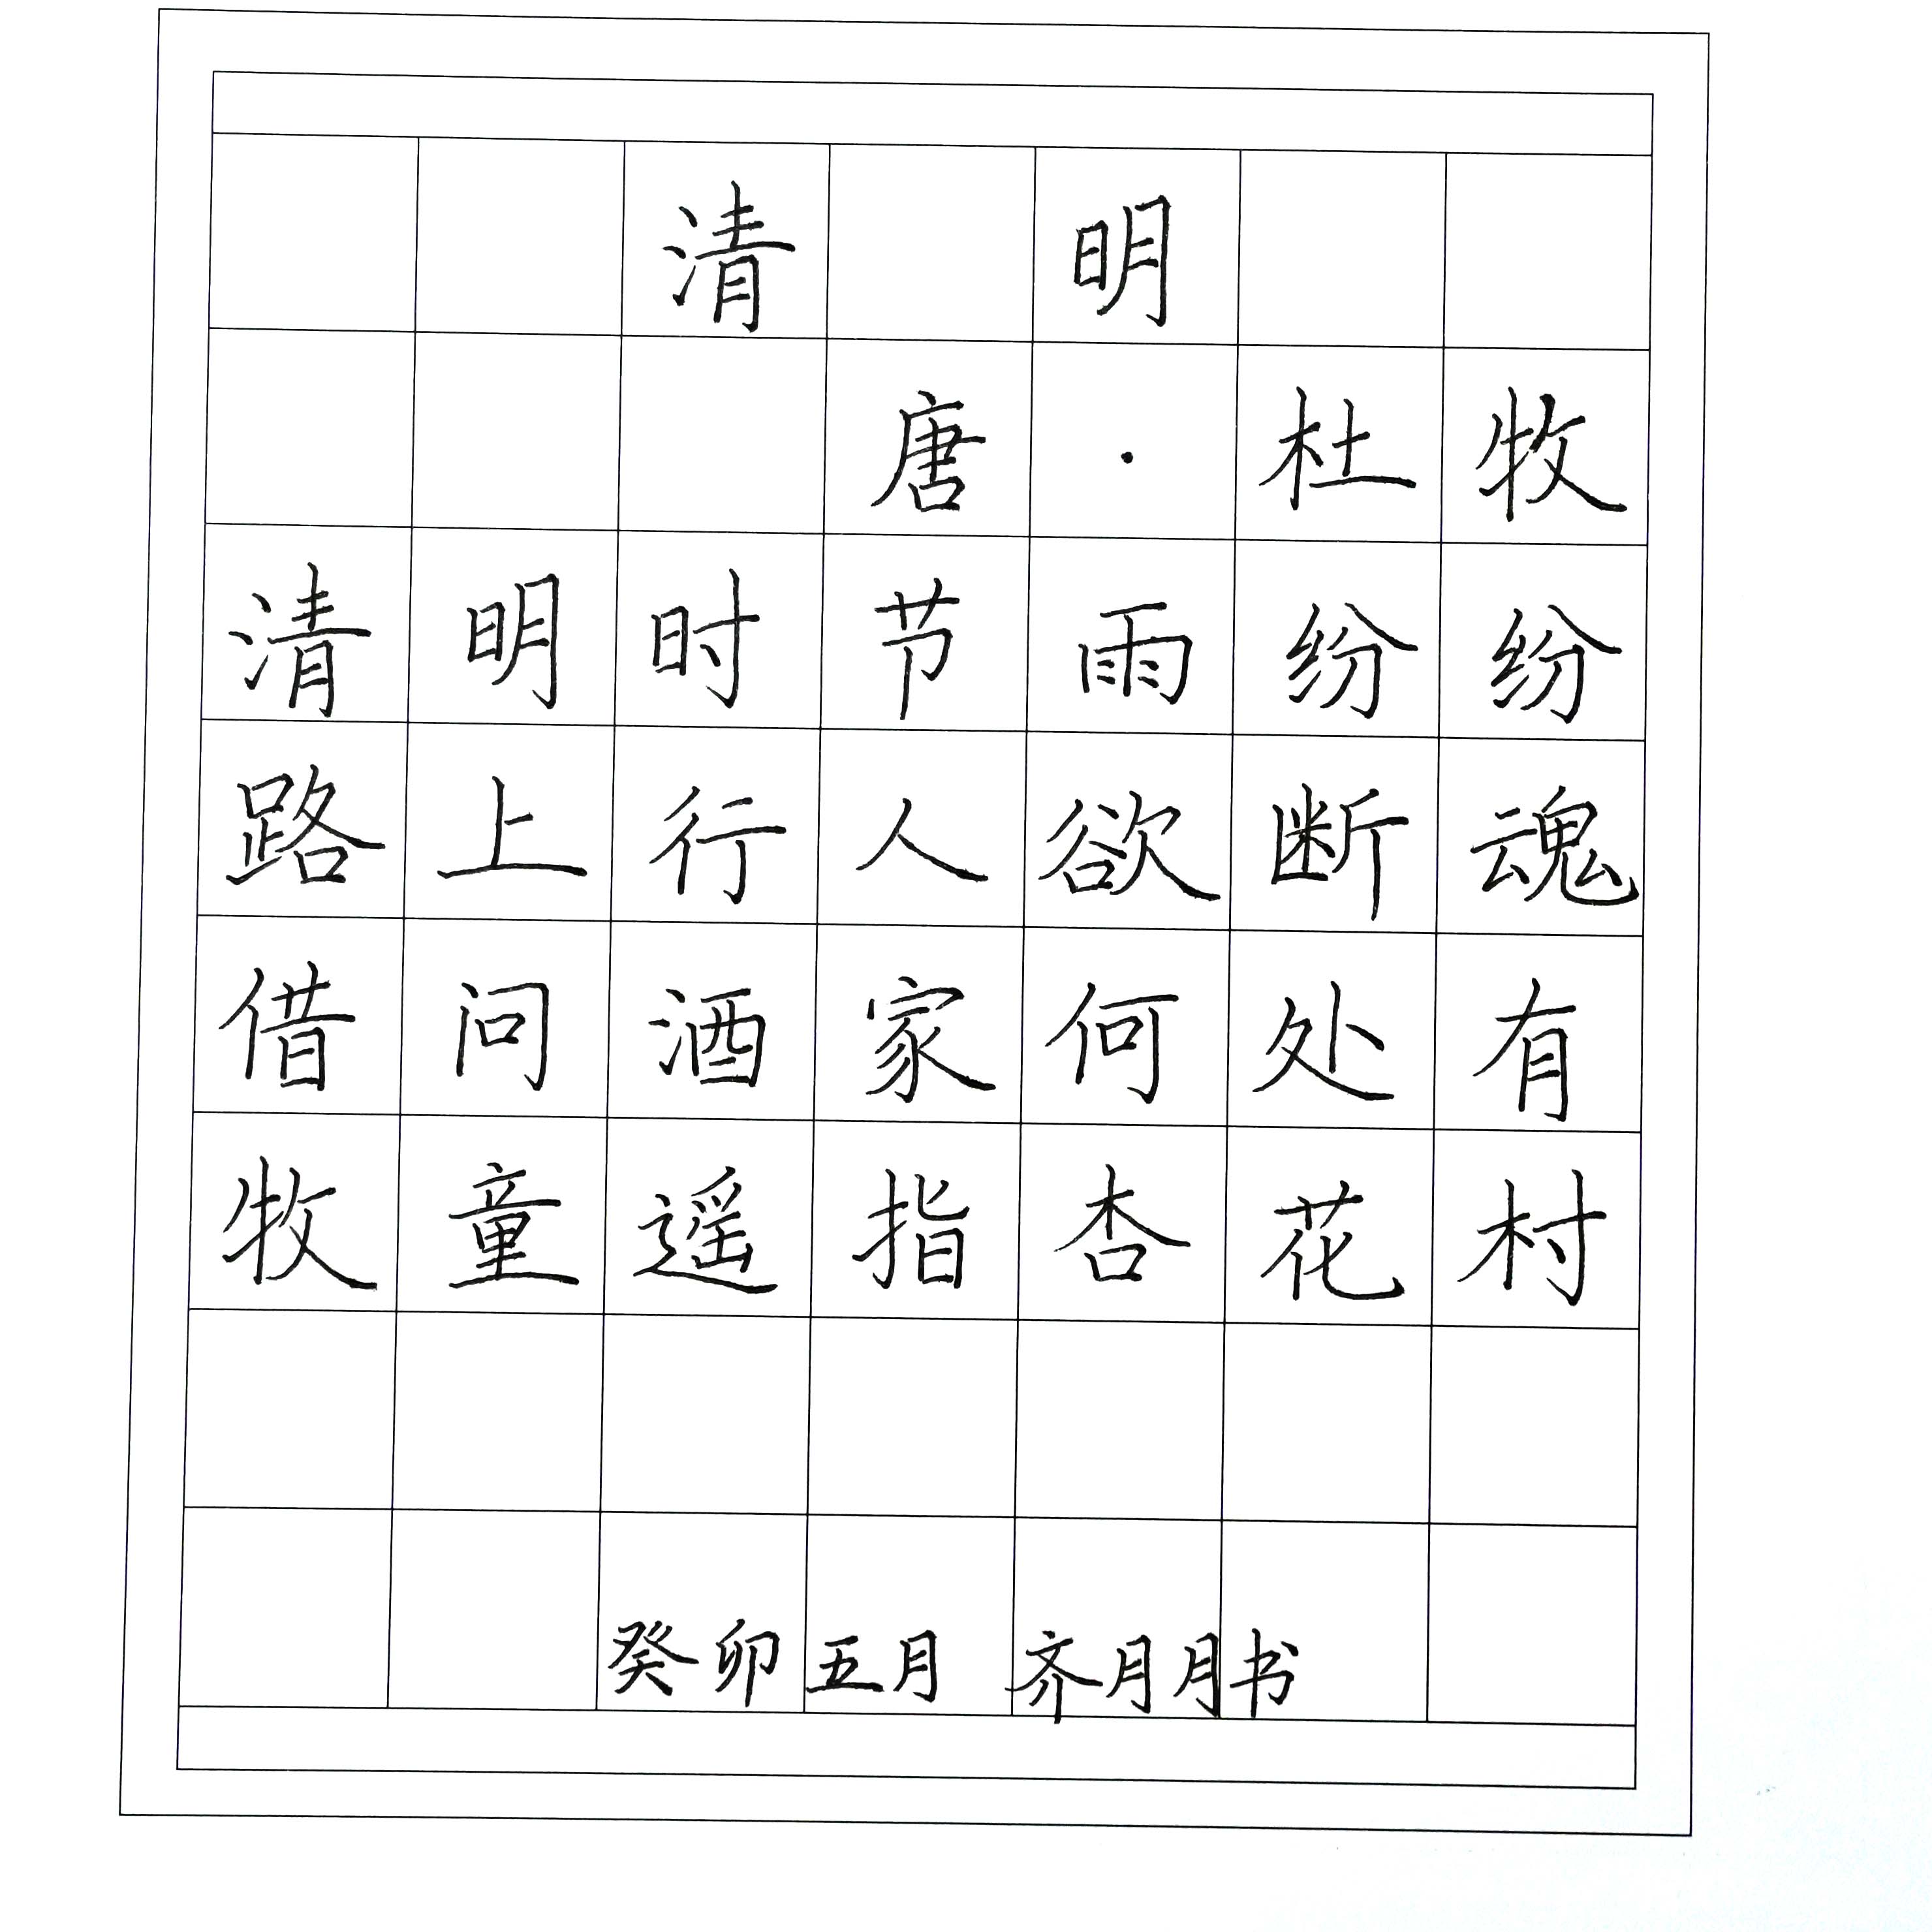 清明
唐·杜牧
清明时节雨纷纷
路上行人欲断魂
借问酒家何处有
牧童遥指杏花村
癸卯五月 齐月月书